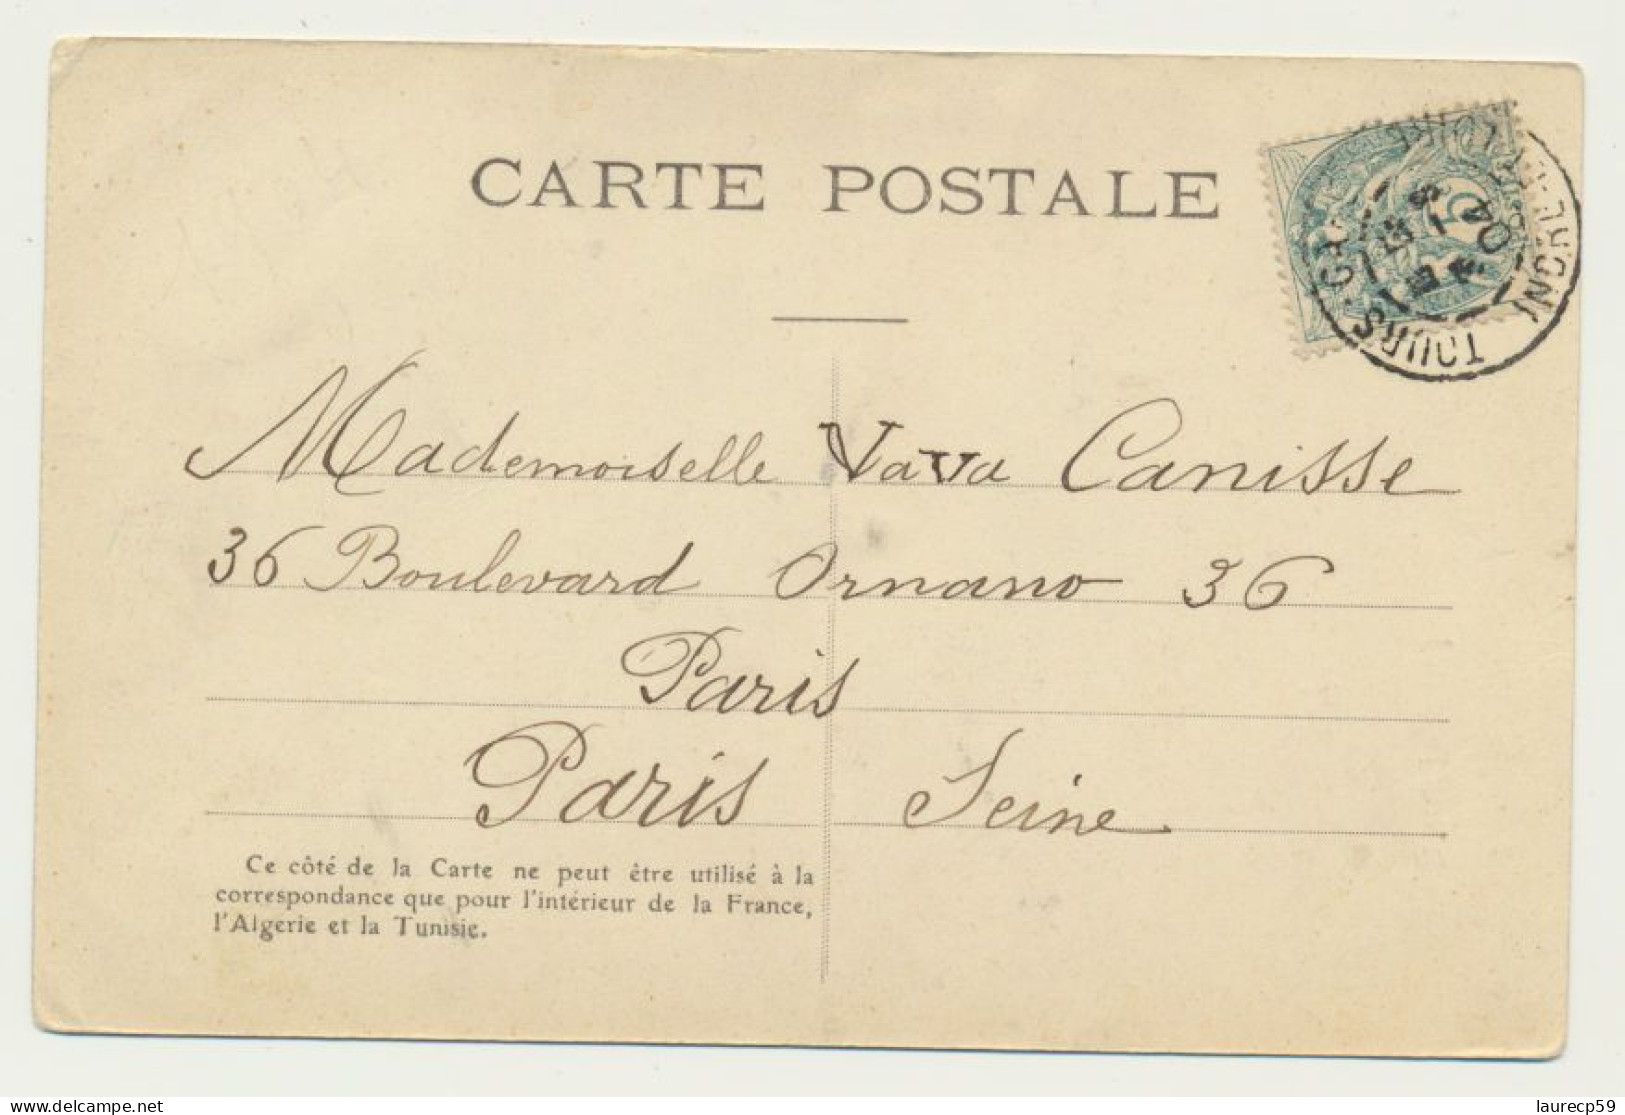 CARTE POSTALE
5
TOURS-GARE
INDRE-ET-LOIRE
04
Mademoiselle VaVa Canisse
36 Boulevard Ornano 36
Paris
Paris Seine
Ce côté de la Carte ne peut être utilisé à la
correspondance que pour l'intérieur de la France,
l'Algérie et la Tunisie.
laurecp59